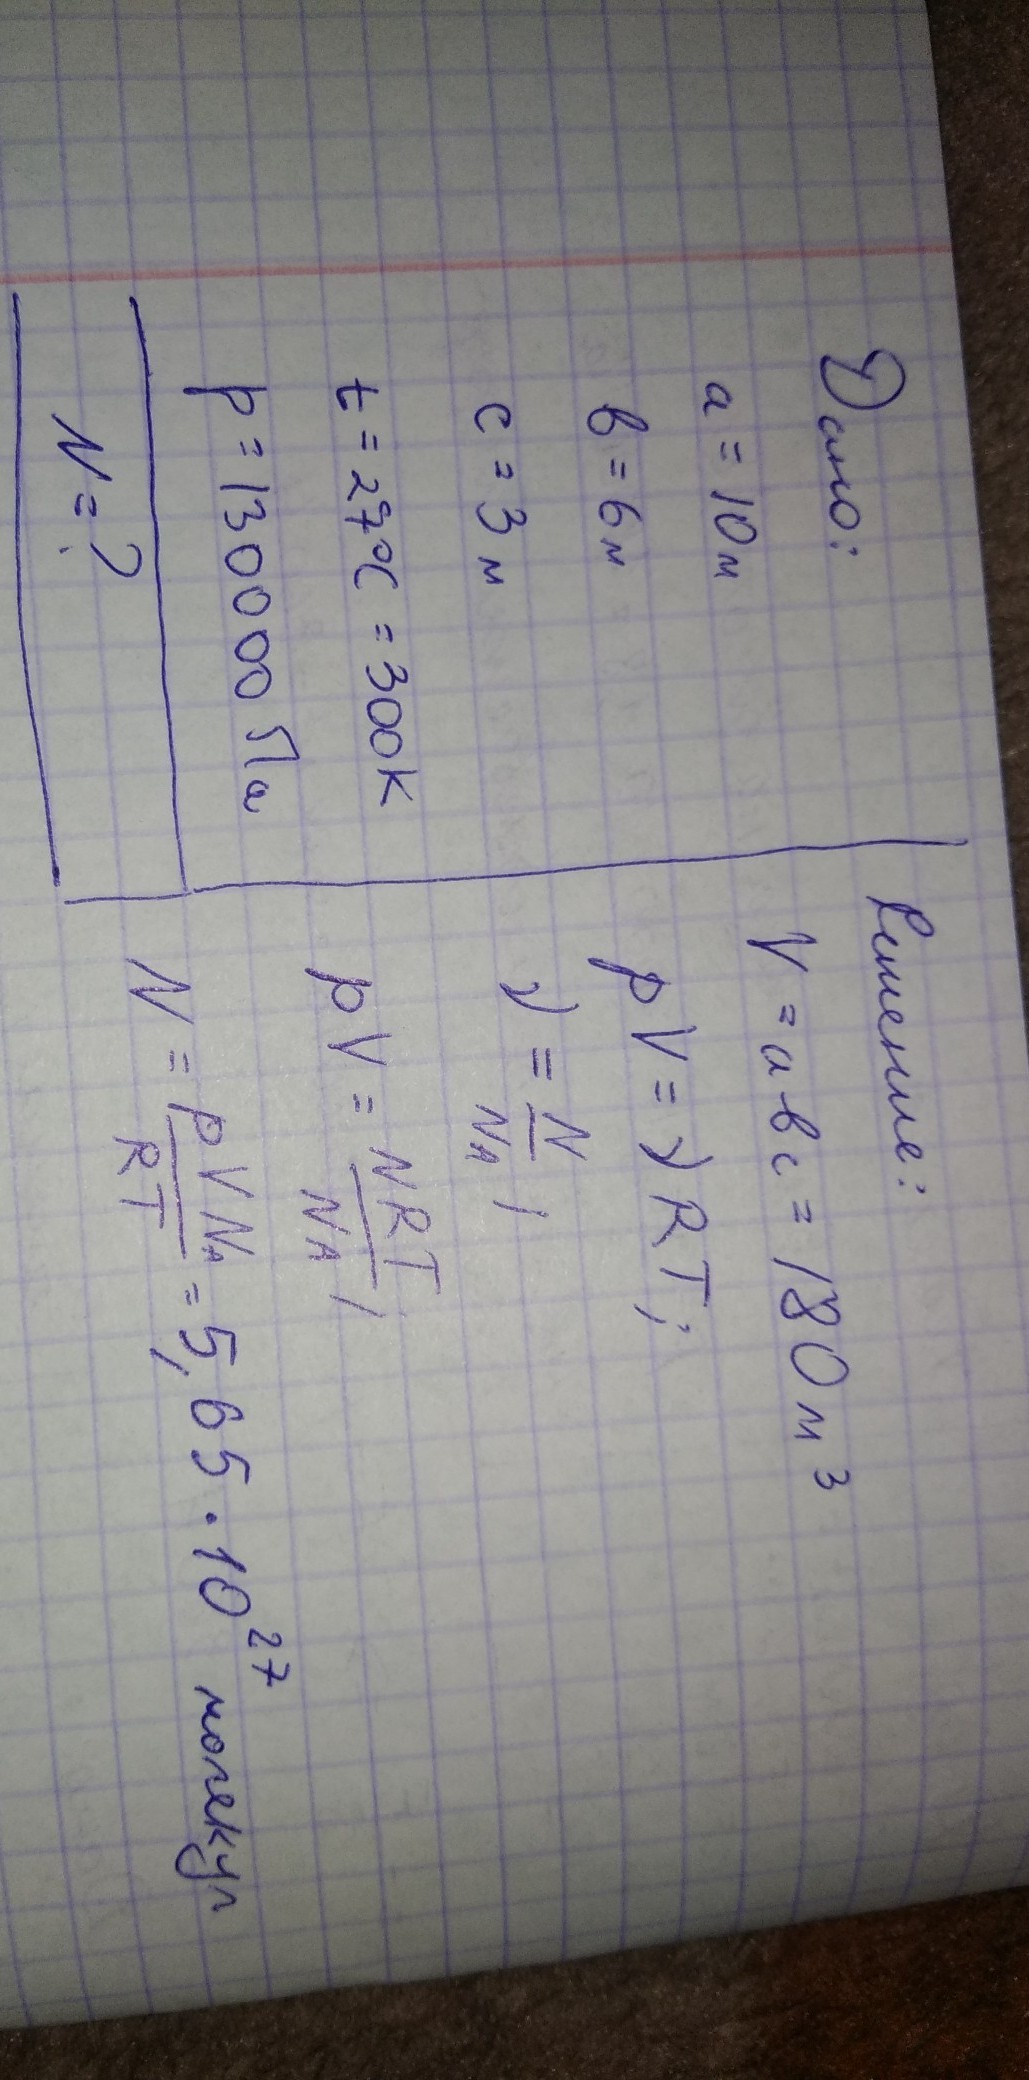 Дано:
a = 10 м
b = 6 м
c = 3 м
t = 27°C = 300 K
p = 130000 Па
N = ?
Решение:
V = abc = 180 м³
pV = νRT;
ν = N/Nᴀ;
pV = NRT/Nᴀ;
N = pVNᴀ/RT = 5,65 · 10²⁷ молекул